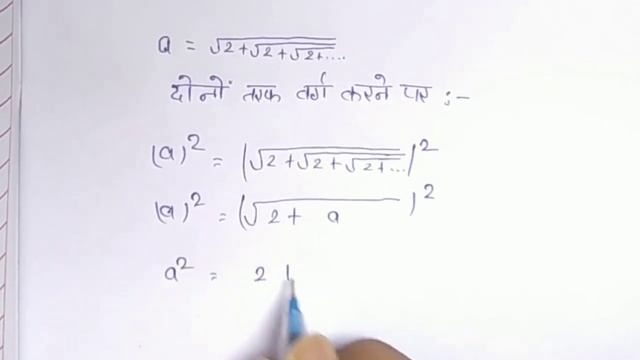 a = √2+√2+√2+....
दोनों तरफ वर्ग करने पर :-
(a)² = (√2+√2+√2+...)²
(a)² = (√2+ a )²
a² = 2